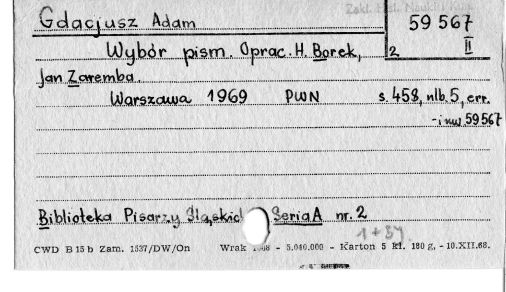 Gdacjusz Adam
59 567
II
2
Wybór pism. Oprac. H. Borek,
Jan Zaremba.
Warszawa 1969 PWN s. 458, nlb. 5, err.
- i nw 59567
Biblioteka Pisarzy Śląskic Seria A nr. 2
1 + 34
CWD B 15 b Zam. 1537/DW/On Wrak - 5.040.000 - Karton 5 kl. 180 g, - 10.XII.68.